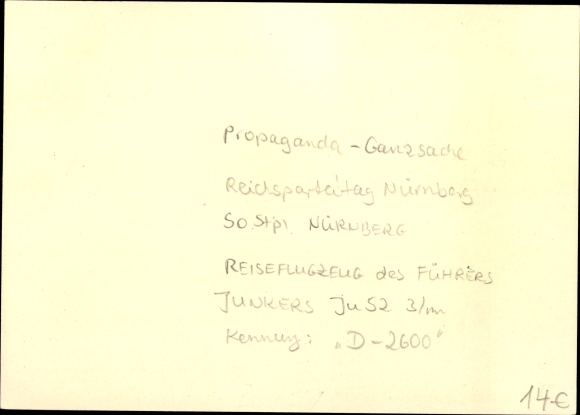 Propaganda - Ganzsache
Reichsparteitag Nürnberg
So.Stpl. NÜRNBERG
REISEFLUGZEUG des FÜHRERS
JUNKERS Ju52 3/m
Kennung: „D-2600"
14€